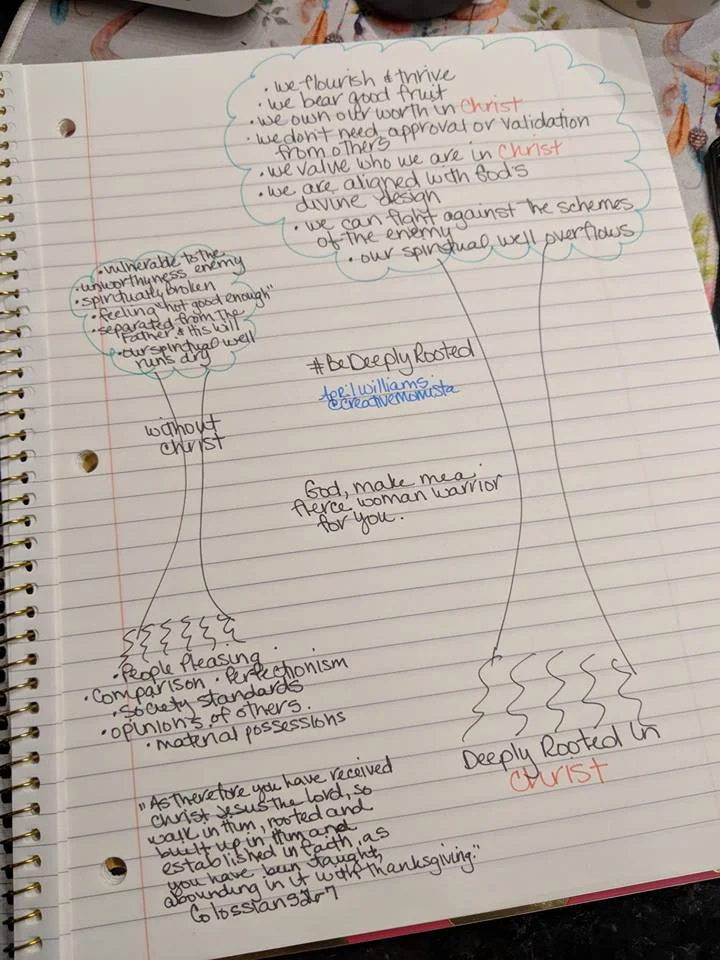 • we flourish & thrive
• we bear good fruit
• we own our worth in Christ
• we don't need approval or validation
from others
• we value who we are in Christ
• we are aligned with God's
divine design
• we can fight against the schemes
of the enemy
• our spiritual well overflows
• vulnerable to the
unworthyness enemy
• spiritually broken
• feeling "not good enough"
• separated from the
Father & His will
• our spiritual well
runs dry
without
christ
#BeDeeplyRooted
April Williams
@creativemomista
God, make me a
fierce woman warrior
for you.
• People Pleasing •
• Comparison • Perfectionism
• society standards
• opinions of others.
• material possessions
Deeply Rooted in
Christ
"As therefore you have received
Christ Jesus the Lord, so
walk in Him, rooted and
built up in Him and
established in faith, as
you have been taught,
abounding in it with thanksgiving."
Colossians 2:6-7